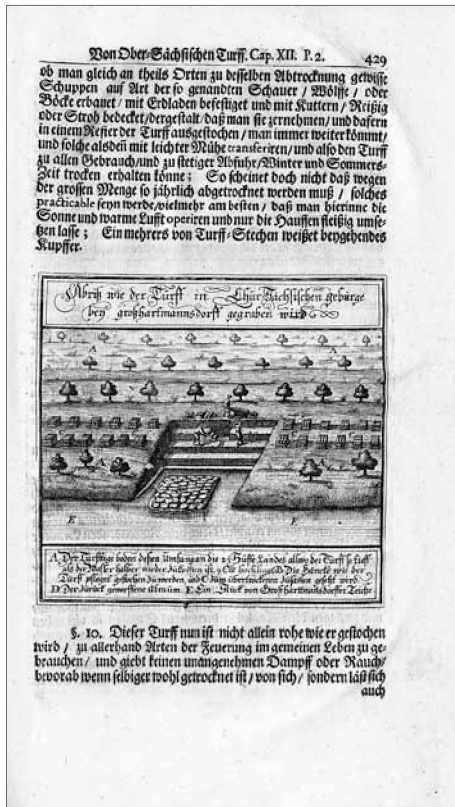 Von Ober-Sächsischen Turff. Cap. XII. P. 2. 429
ob man gleich an theils Orten zu desselben Abtrocknung gewisse
Schuppen auf Art der so genandten Schauer / Wölffe / oder
Böcke erbauet / mit Erdladen befestiget und mit Kuttern / Reißig
oder Stroh bedecket / dergestalt / daß man sie zernehmen / und dafern
in einem Refier der Turff ausgestochen / man immer weiter kömmt /
und solche alsdeñ mit leichter Mühe transferiren / und also den Turff
zu allen Gebrauch / und zu stetiger Abfuhr / Winter und Sommers-
Zeit trocken erhalten könne; So scheinet doch nicht daß wegen
der grossen Menge so jährlich abgetrocknet werden muß / solches
practicable seyn werde / vielmehr am besten / daß man hierinne die
Sonne und warme Lufft operiren und nur die Hauffen fleißig umse-
tzen lasse; Ein mehrers von Turff-Stechen weißet beygehendes
Kupffer.
Abriß wie der Turff in Chur Sächsischen gebürge
bey großhartmannsdorff gegraben wird
A
A
E
E
A. Der Turfftige boden deßen Umfang an die 2 Huffe Landes allwo der Turff so tieff
als der Waßer halber nieder zukomen ist. Die Bäncke wie der
Turff pfleget gestochen zu werden, und C zum übertrockenen zusamen gesetzt wird
D. Der zurück geworffene Abraum. E. Ein Stück von Groß hartmansdorffer Teiche
§. 10. Dieser Turff nun ist nicht allein rohe wie er gestochen
wird / zu allerhand Arten der Feuerung im gemeinen Leben zu ge-
brauchen / und giebt keinen unangenehmen Dampff oder Rauch /
bevorab wenn selbiger wohl getrocknet ist / von sich / sondern läst sich
auch